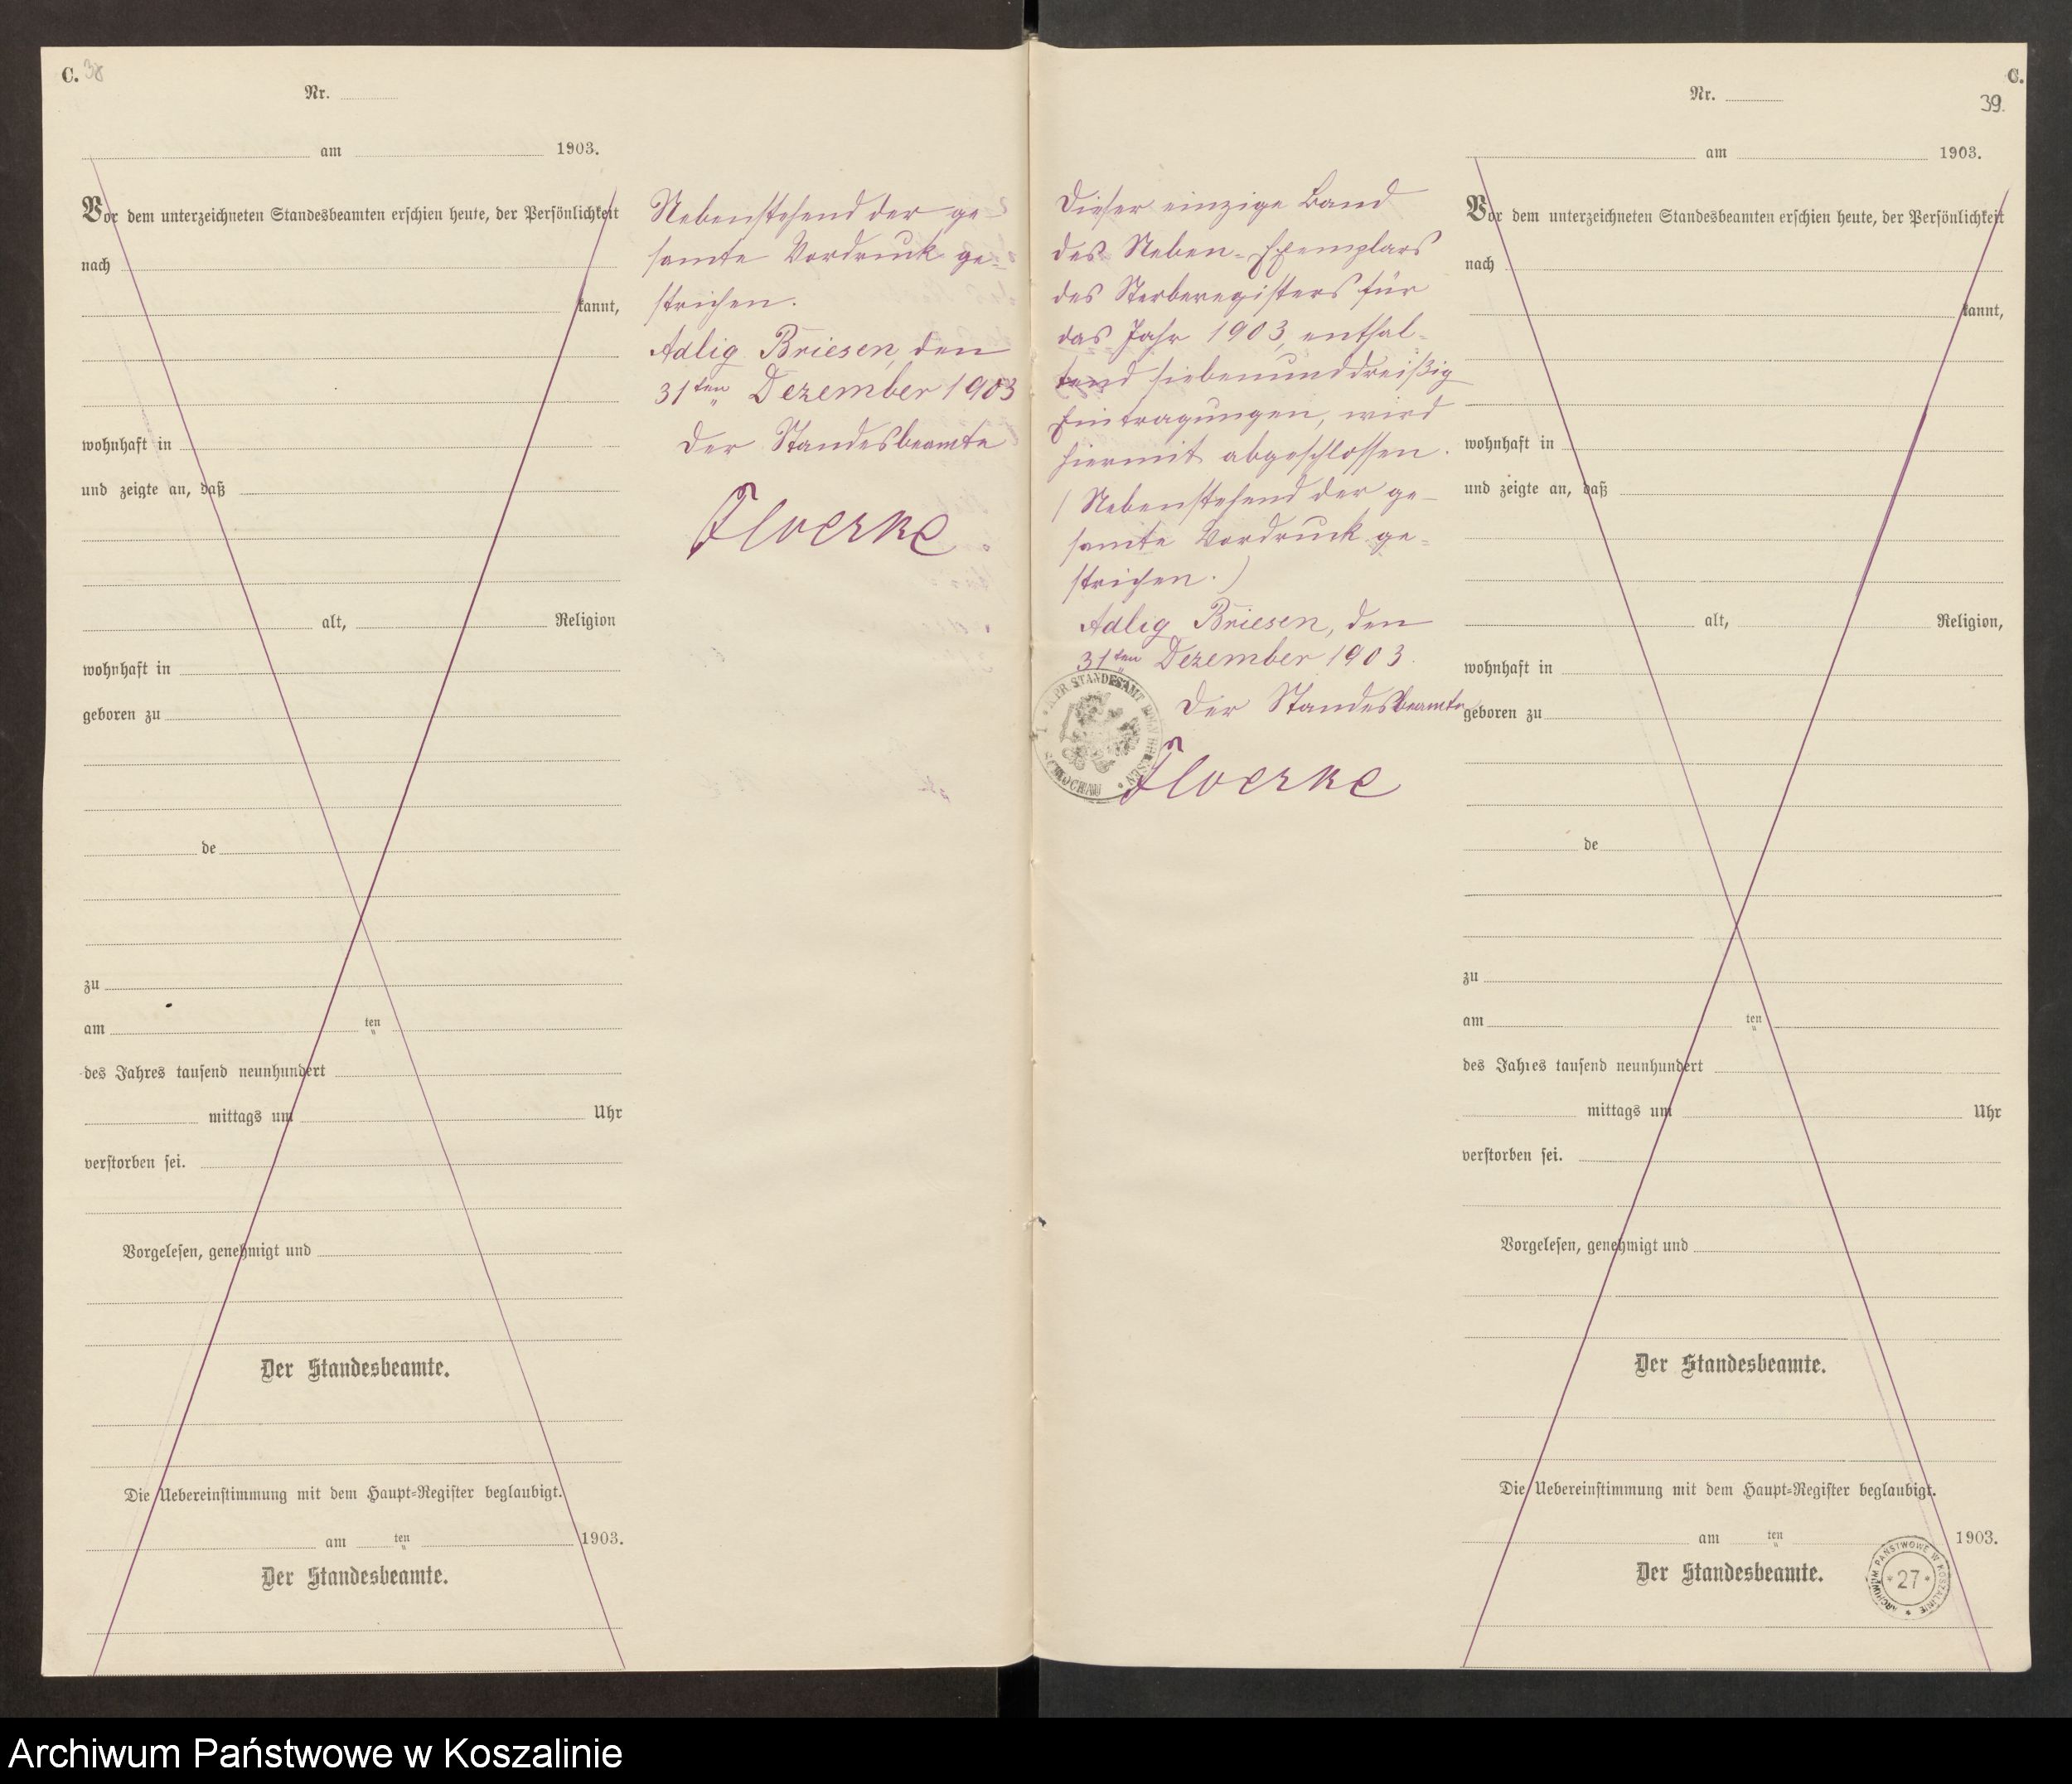 C. 38
Nr.
am 1903.
Vor dem unterzeichneten Standesbeamten erschien heute, der Persönlichkeit
nach
kannt,
wohnhaft in
und zeigte an, daß
alt, Religion
wohnhaft in
geboren zu
de
zu
am ten
des Jahres tausend neunhundert
mittags um Uhr
verstorben sei.
Vorgelesen, genehmigt und
Der Standesbeamte.
Die Uebereinstimmung mit dem Haupt=Register beglaubigt.
am ten 1903.
Der Standesbeamte.
Nebenstehend der ge-
samte Vordruck ge-
strichen.
Adlig Briesen, den
31ten Dezember 1903
Der Standesbeamte
Floerke
Dieser einzige Band
des Neben-Exemplars
des Sterberegisters für
das Jahr 1903, enthal-
tend siebenunddreißig
Eintragungen, wird
hiermit abgeschlossen.
(Nebenstehend der ge-
samte Vordruck ge-
strichen.)
Adlig Briesen, den
31ten Dezember 1903.
Der Standesbeamte
Floerke
STANDESAMT
SCHLOCHAU
C.
39.
Nr.
am 1903.
Vor dem unterzeichneten Standesbeamten erschien heute, der Persönlichkeit
nach
kannt,
wohnhaft in
und zeigte an, daß
alt, Religion,
wohnhaft in
geboren zu
de
zu
am ten
des Jahres tausend neunhundert
mittags um Uhr
verstorben sei.
Vorgelesen, genehmigt und
Der Standesbeamte.
Die Uebereinstimmung mit dem Haupt=Register beglaubigt.
am ten 1903.
Der Standesbeamte.
ARCHIWUM PAŃSTWOWE W KOSZALINIE
* 27 *
Archiwum Państwowe w Koszalinie